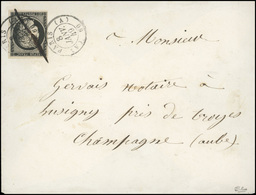 à Monsieur
Gervais notaire à
Lusigny près de troyes
Champagne (aube)